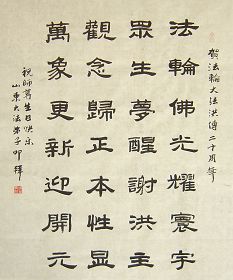 賀法輪大法洪傳二十周年
法輪佛光耀寰宇
眾生夢醒謝洪主
觀念歸正本性显
萬象更新迎開元
祝師尊生日快乐
山東大法弟子叩拜